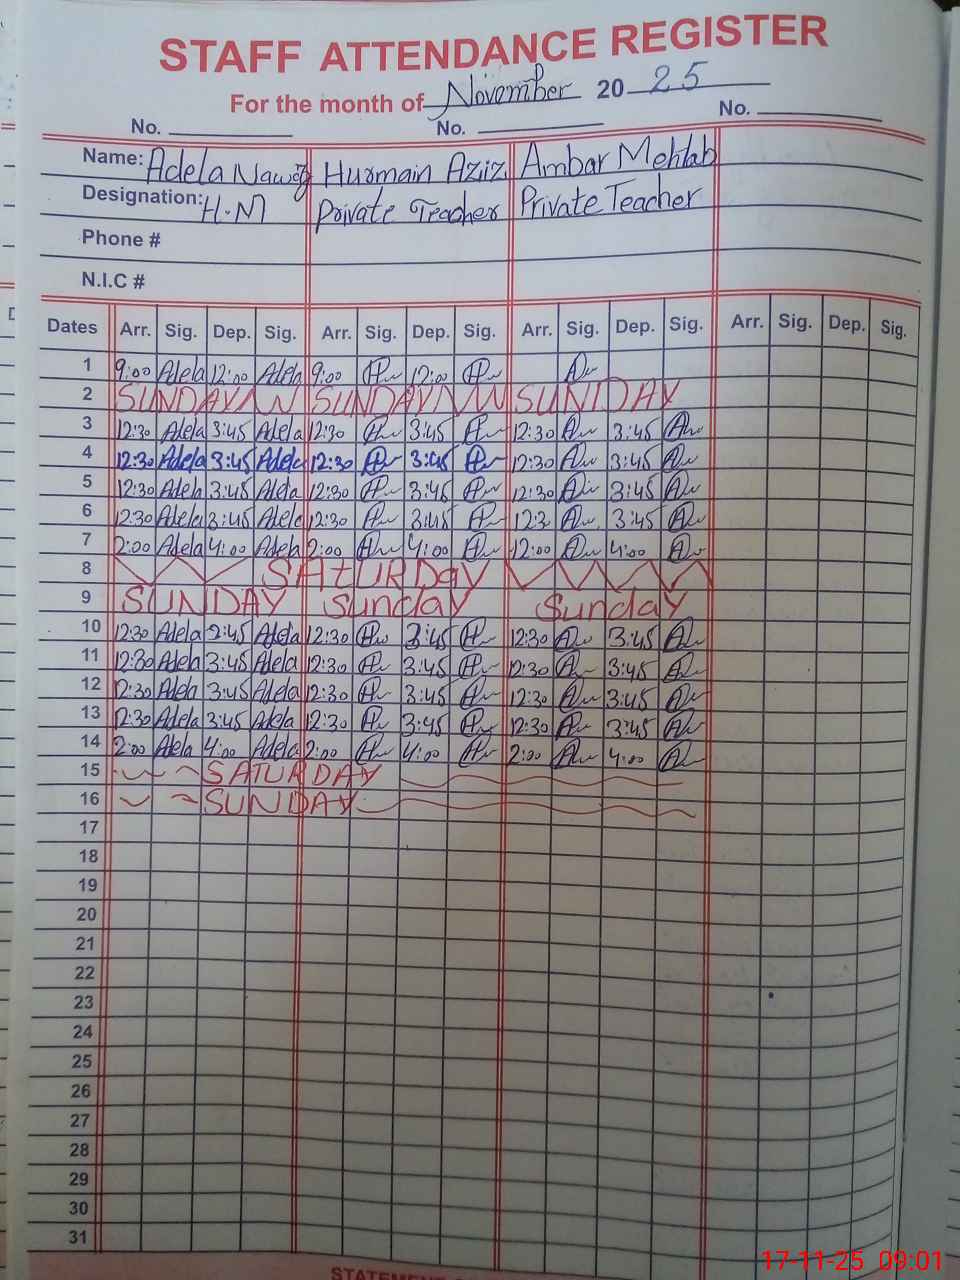 STAFF ATTENDANCE REGISTER
For the month of November 20 25
No. No. No.
Name: Adela Nawaz Hurmain Aziz Ambar Mehtab
Designation: H.M Private Teacher Private Teacher
Phone #
N.I.C #
Dates Arr. Sig. Dep. Sig. Arr. Sig. Dep. Sig. Arr. Sig. Dep. Sig. Arr. Sig. Dep. Sig.
1 9:00 Adela 12:00 Adela 9:00 12:00
2 SUNDAY SUNDAY SUNDAY
3 12:30 Adela 3:45 Adela 12:30 3:45 12:30 3:45
4 12:30 Adela 3:45 Adela 12:30 3:45 12:30 3:45
5 12:30 Adela 3:45 Adela 12:30 3:45 12:30 3:45
6 12:30 Adela 3:45 Adela 12:30 3:45 12:3 3:45
7 2:00 Adela 4:00 Adela 2:00 4:00 12:00 4:00
8 SATURDay
9 SUNDAY Sunday Sunday
10 12:30 Adela 3:45 Adela 12:30 3:45 12:30 3:45
11 12:30 Adela 3:45 Adela 12:30 3:45 12:30 3:45
12 12:30 Adela 3:45 Adela 12:30 3:45 12:30 3:45
13 12:30 Adela 3:45 Adela 12:30 3:45 12:30 3:45
14 2:00 Adela 4:00 Adela 2:00 4:00 2:00 4:00
15 SATURDAY
16 SUNDAY
17
18
19
20
21
22
23
24
25
26
27
28
29
30
31
17-11-25 09:01